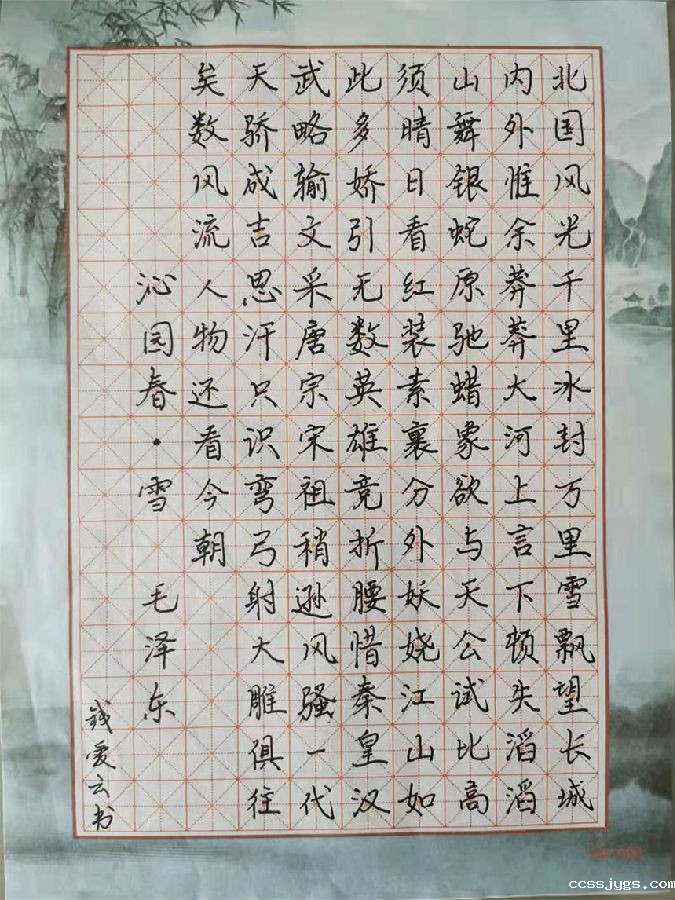 北国风光千里冰封万里雪飘望长城
内外惟余莽莽大河上言下顿失滔滔
山舞银蛇原驰蜡象欲与天公试比高
须晴日看红装素裹分外妖娆江山如
此多娇引无数英雄竞折腰惜秦皇汉
武略输文采唐宗宋祖稍逊风骚一代
天骄成吉思汗只识弯弓射大雕俱往
矣数风流人物还看今朝
沁园春·雪 毛泽东
钱爱云书
ccssjugs.com